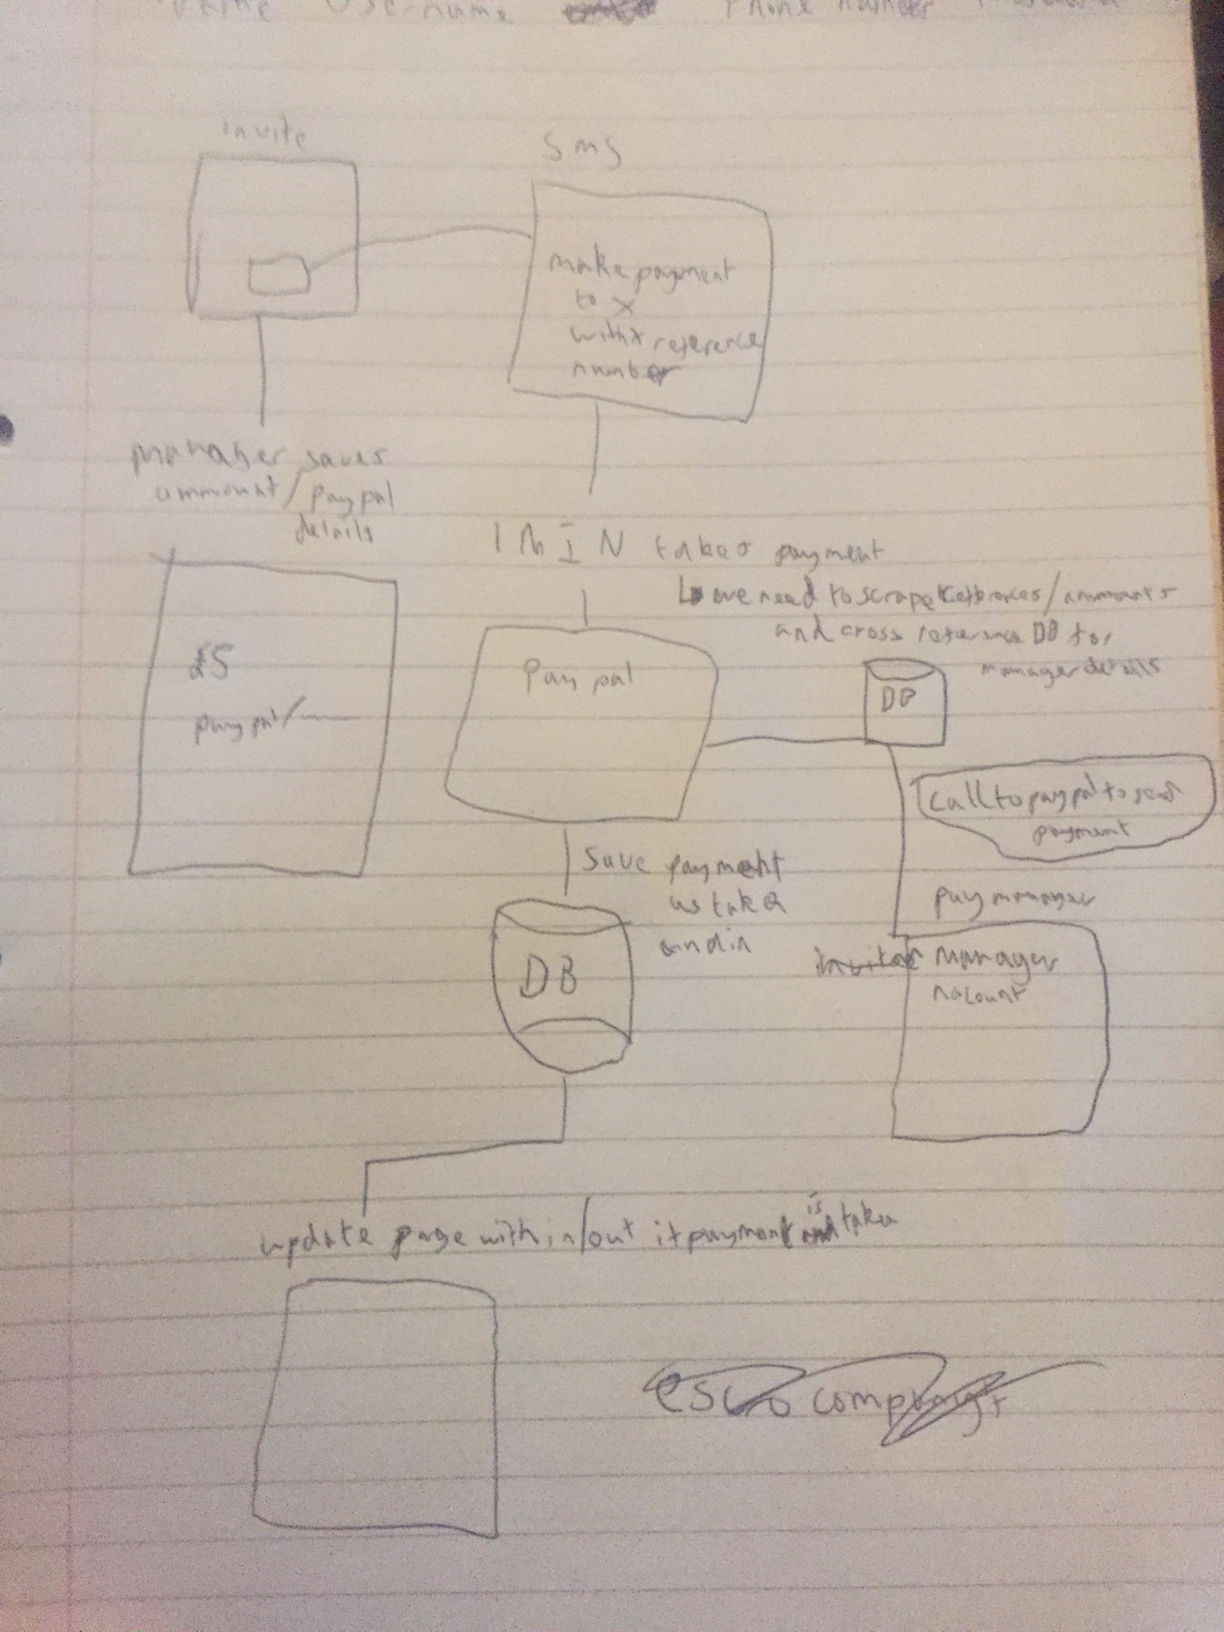 name Username Phone number
invite
SMS
make payment
to x
with x reference
number
manager saves
ammount/paypal
details
IMIN takes payment
we need to scrape references/ammounts
and cross reference DB for
manager details
£5
paypal/
Paypal
DB
Call to paypal to send
payment
save payment
as taken
and in
pay manager
DB
manager
account
update page with in/out if payment is taken